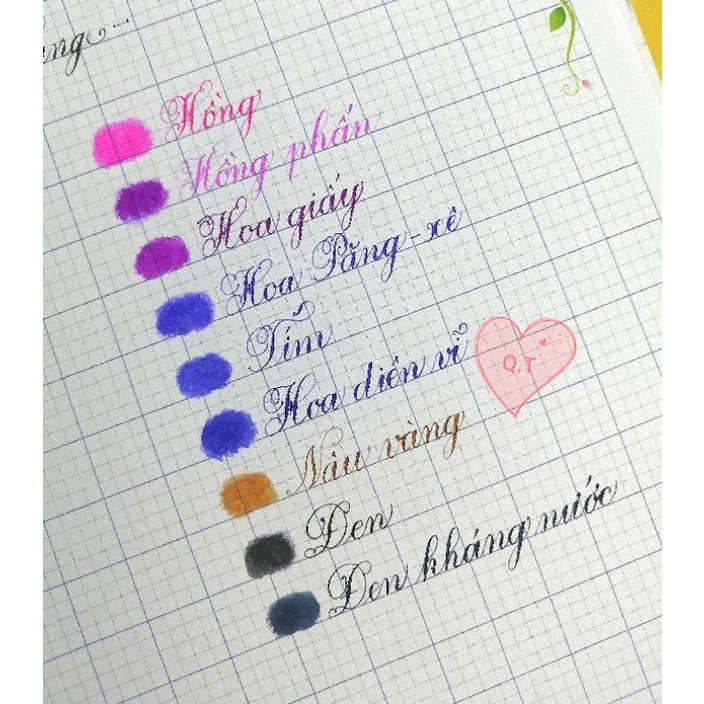 Hồng
Hồng phấn
Hoa giấy
Hoa Păng-xê
Tím
Hoa diên vĩ
Q.T
Nâu vàng
Đen
Đen kháng nước